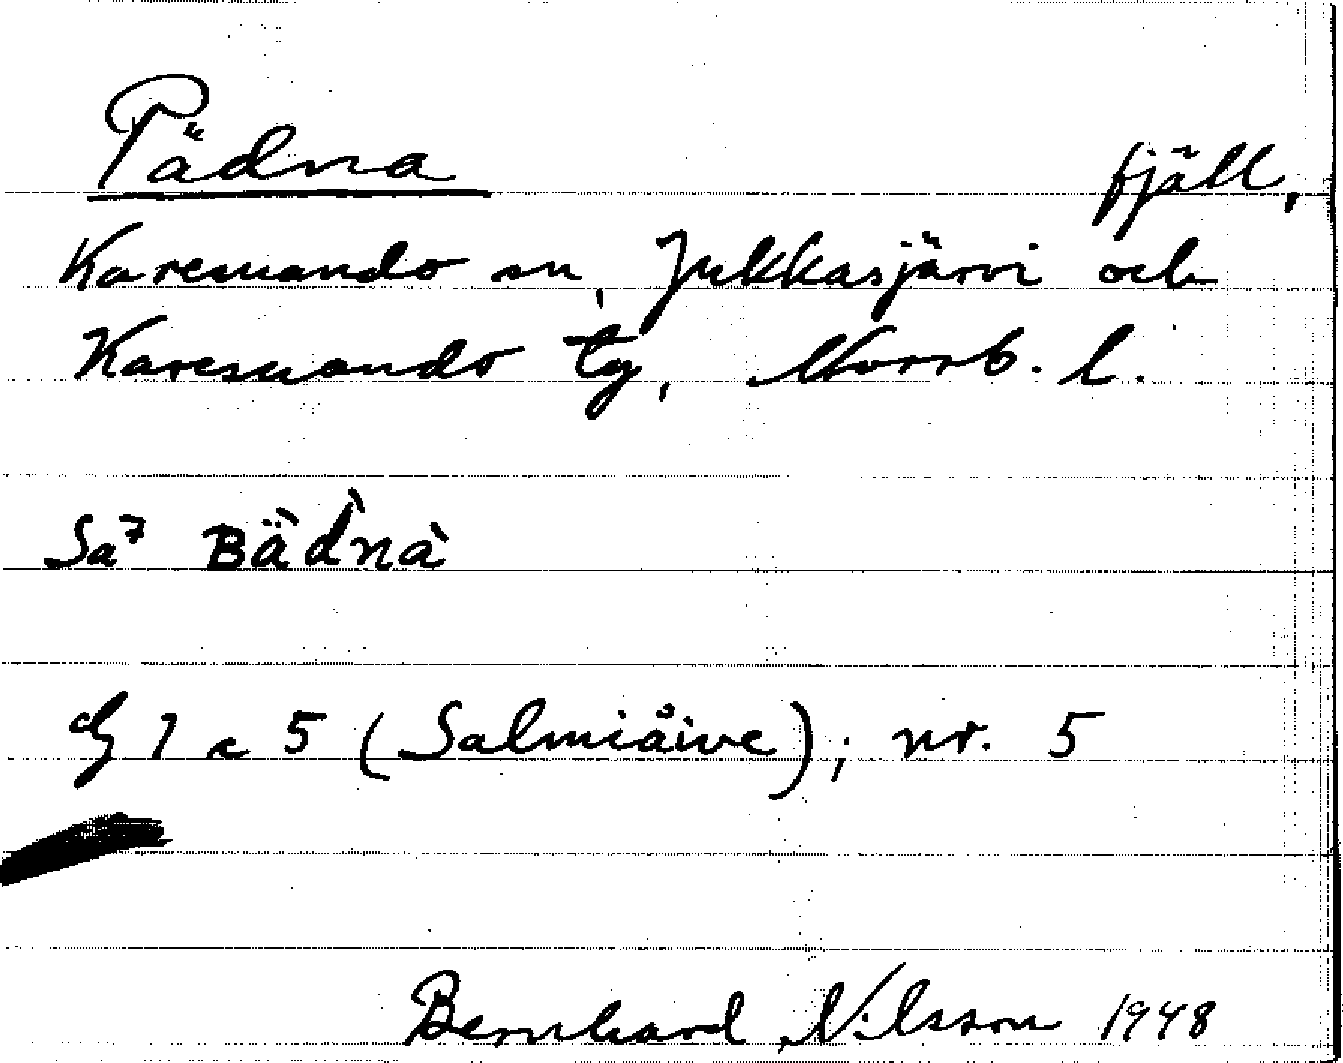 Pädna fjäll,
Karesuando sn, Jukkasjärvi och
Karesuando tg, Norrb. l.
Sa⁷ Bä̀d̀nà
G 1 c 5 (Salmiåive); nr. 5
Bernhard Nilsson 1948